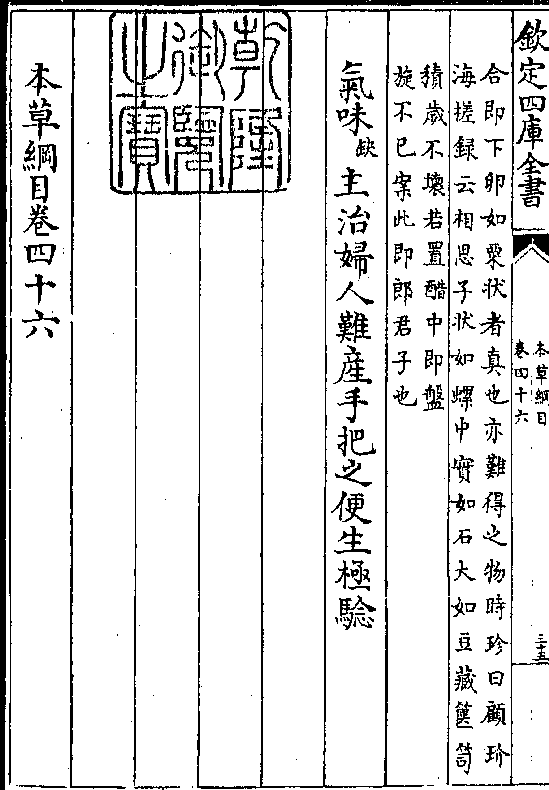 欽定四庫全書
本草綱目
卷四十六
三十五
合即下卵如粟狀者真也亦難得之物時珍曰顧玠
海槎録云相思子狀如螺中實如石大如豆藏篋笥
積歲不壞若置醋中即盤
旋不已案此即郎君子也
氣味缺主治婦人難産手把之便生極騐
乾隆御覽之寶
本草綱目卷四十六